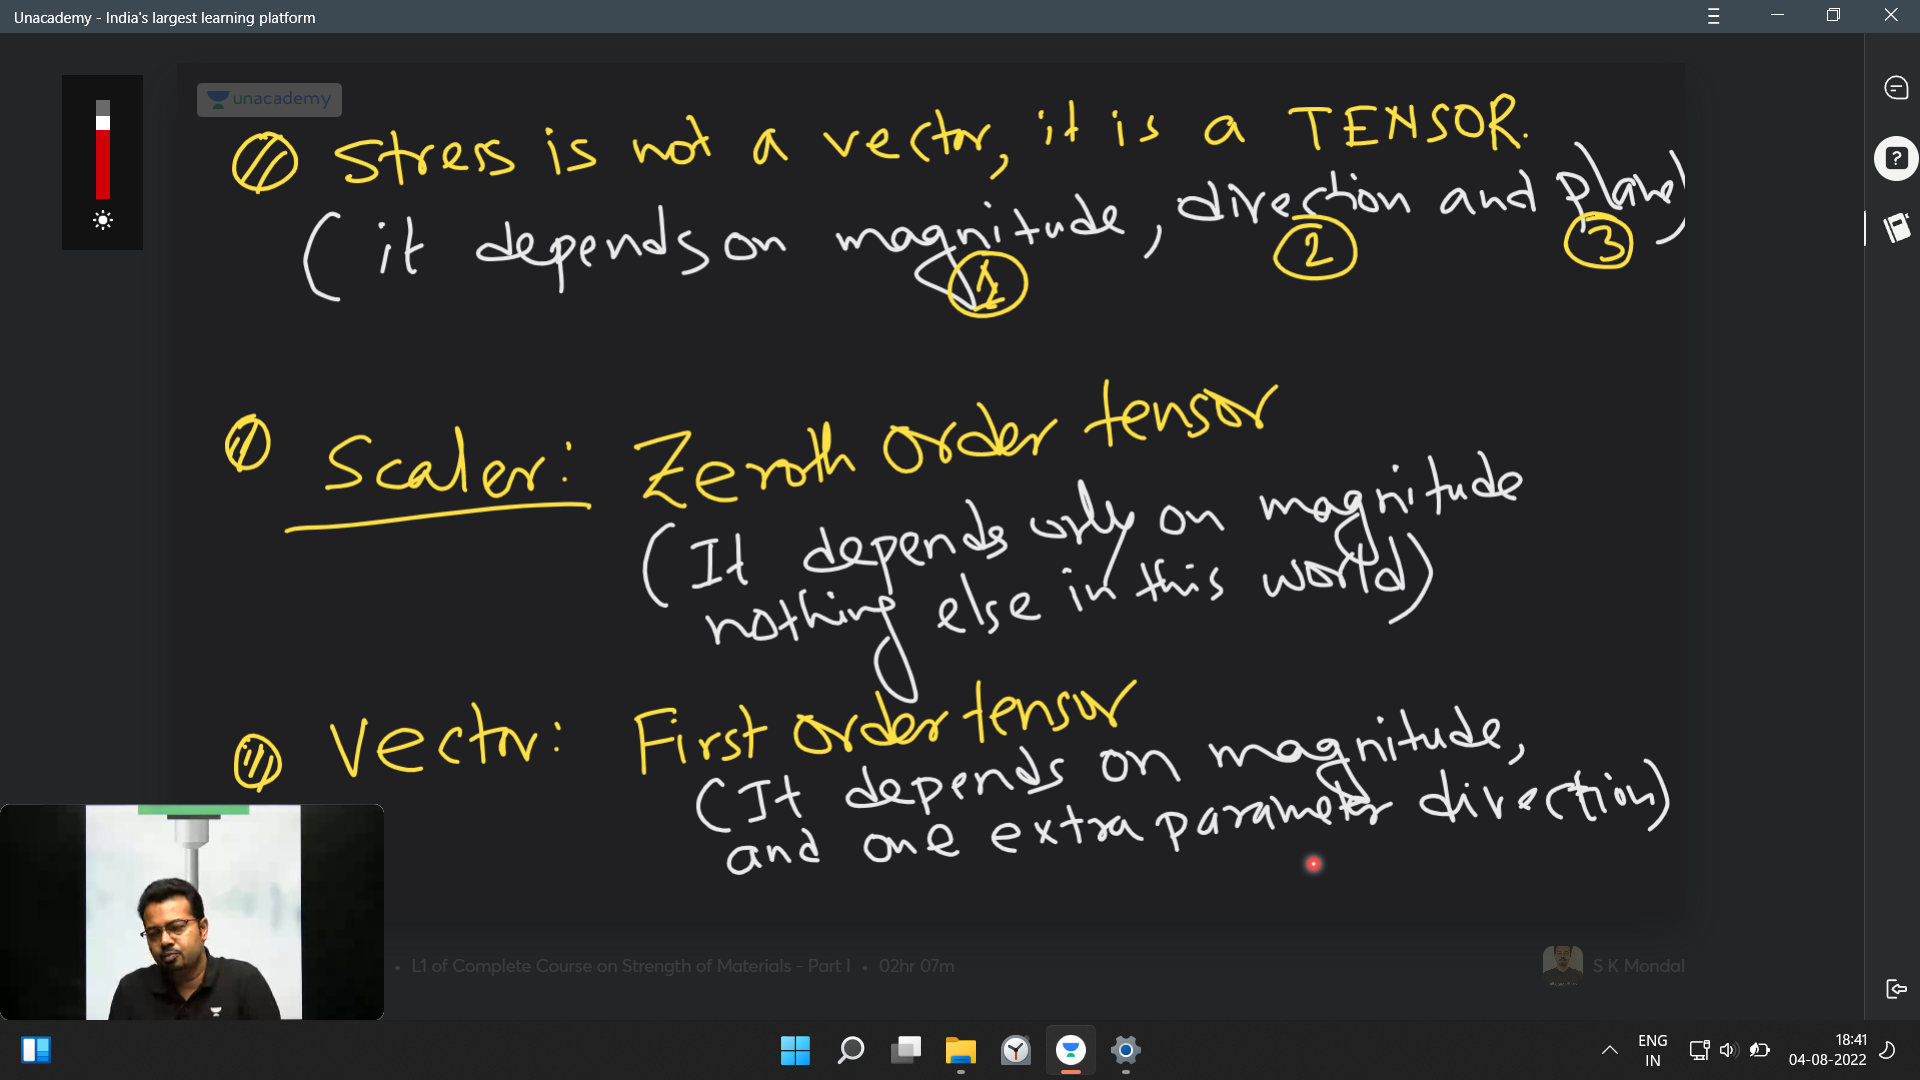 Unacademy - India's largest learning platform
unacademy
Stress is not a vector, it is a TENSOR.
(it depends on magnitude, direction and plane)
1 2 3
Scaler: Zeroth order tensor
(It depends only on magnitude
nothing else in this world)
Vector: First order tensor
(It depends on magnitude,
and one extra parameter direction)
• L1 of Complete Course on Strength of Materials - Part I • 02hr 07m
S K Mondal
ENG
IN
18:41
04-08-2022